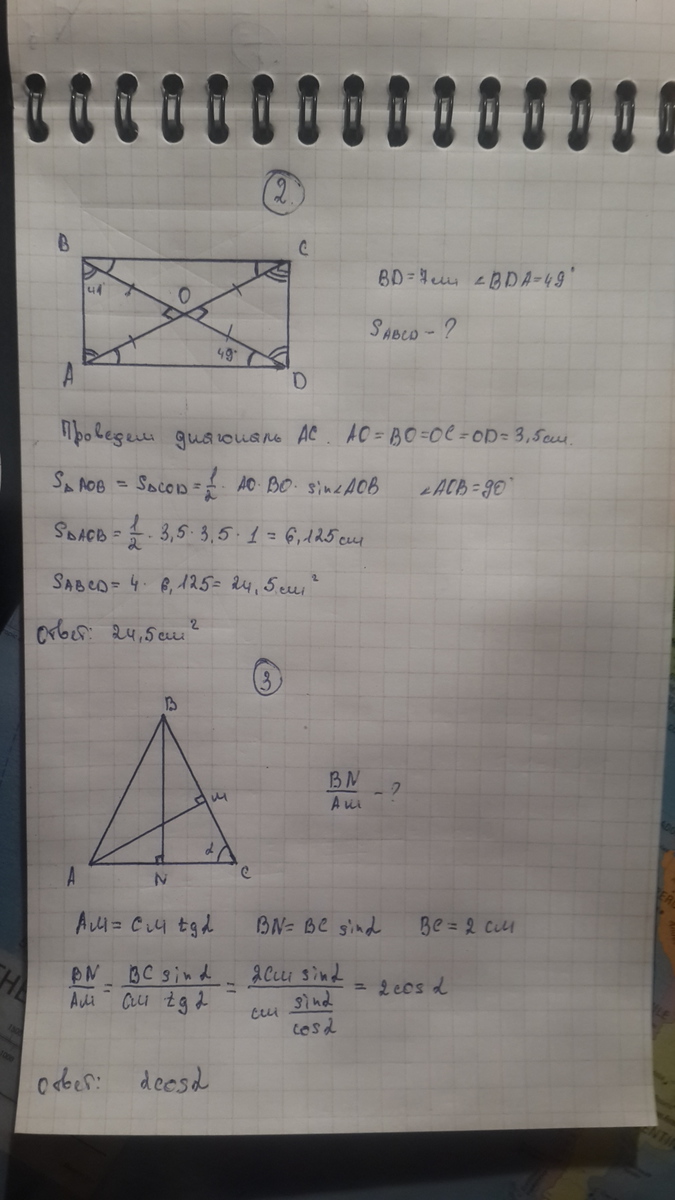 2.
B C
41° O
49°
A D
BD=7см ∠BDA=49°
S ABCD - ?
Проведем диагональ AC. AO=BO=OC=OD=3,5см.
S△AOB = S△COD = 1/2 · AO·BO· sin∠AOB ∠AOB=90°
S△AOB = 1/2 · 3,5·3,5·1 = 6,125см
SABCD = 4 · 6,125= 24,5см²
Ответ: 24,5см²
3
B
M
α
A N C
BN/AM - ?
AM= CM tgα BN= BC sinα BC = 2 CM
BN/AM = BC sinα / CM tgα = 2CM sinα / CM sinα/cosα = 2cosα
Ответ: 2cosα